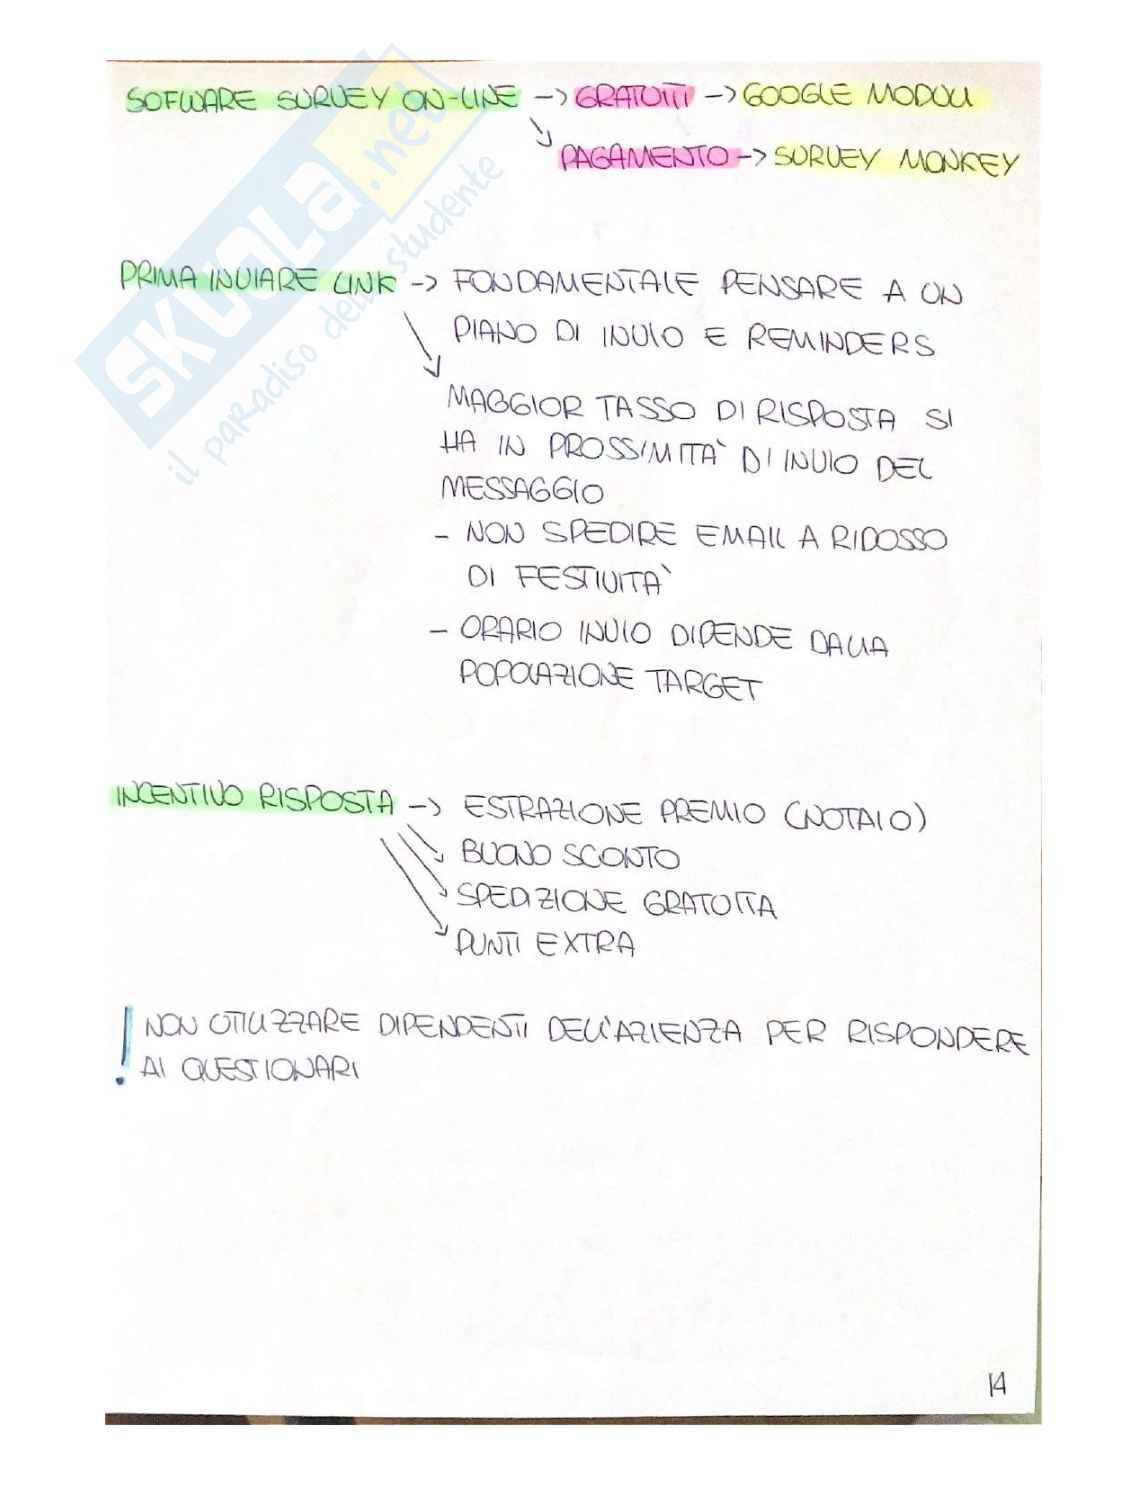 SKUOLA.net
il paradiso dello studente
SOFWARE SURVEY ON-LINE -> GRATUITI -> GOOGLE MODULI
PAGAMENTO -> SURVEY MONKEY
PRIMA INVIARE LINK -> FONDAMENTALE PENSARE A UN
PIANO DI INVIO E REMINDERS
MAGGIOR TASSO DI RISPOSTA SI
HA IN PROSSIMITA` DI INVIO DEL
MESSAGGIO
- NON SPEDIRE EMAIL A RIDOSSO
DI FESTIVITA`
- ORARIO INVIO DIPENDE DALLA
POPOLAZIONE TARGET
INCENTIVO RISPOSTA -> ESTRAZIONE PREMIO (NOTAIO)
BUONO SCONTO
SPEDIZIONE GRATUITA
PUNTI EXTRA
! NON UTILIZZARE DIPENDENTI DELL'AZIENZA PER RISPONDERE
AI QUESTIONARI
14